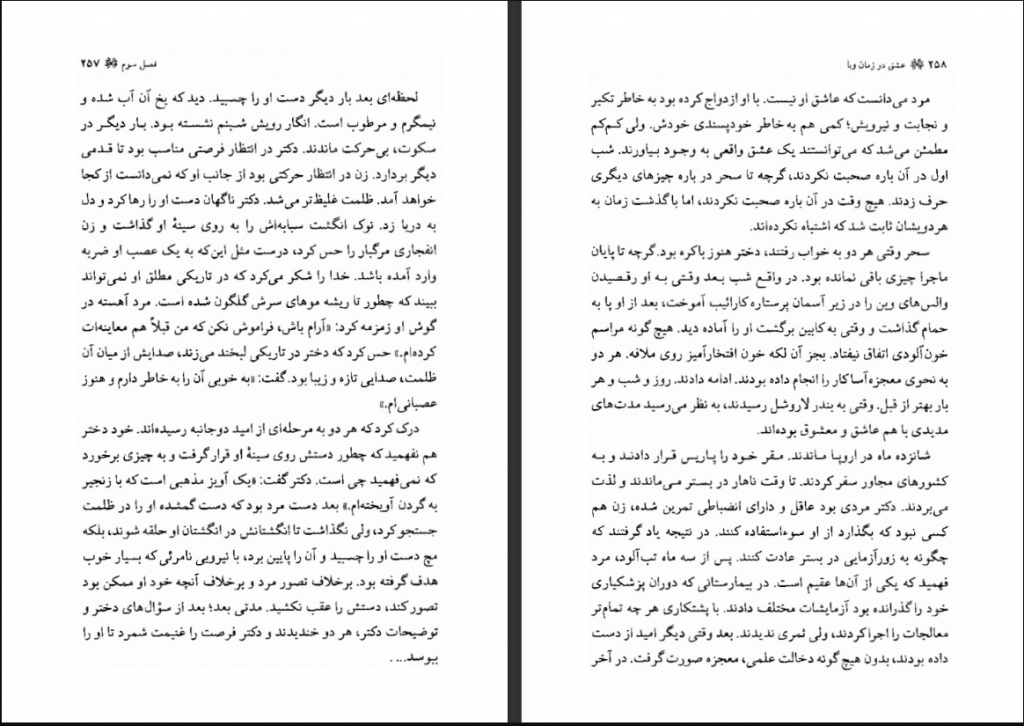 فصل سوم ۲۵۷
لحظه‌ای بعد بار دیگر دست او را چسبید. دید که یخ آن آب شده و
نیمگرم و مرطوب است. انگار رویش شبنم نشسته بود. بار دیگر در
سکوت، بی‌حرکت ماندند. دکتر در انتظار فرصتی مناسب بود تا قدمی
دیگر بردارد. زن در انتظار حرکتی بود از جانب او که نمی‌دانست از کجا
خواهد آمد. ظلمت غلیظ‌تر می‌شد. دکتر ناگهان دست او را رها کرد و دل
به دریا زد. نوک انگشت سبابه‌اش را به روی سینهٔ او گذاشت و زن
انفجاری مرگبار را حس کرد، درست مثل این‌که به یک عصب او ضربه
وارد آمده باشد. خدا را شکر می‌کرد که در تاریکی مطلق او نمی‌تواند
ببیند که چطور تا ریشه موهای سرش گلگون شده است. مرد آهسته در
گوش او زمزمه کرد: «آرام باش، فراموش نکن که من قبلاً هم معاینه‌ات
کرده‌ام.» حس کرد که دختر در تاریکی لبخند می‌زند، صدایش از میان آن
ظلمت، صدایی تازه و زیبا بود. گفت: «به خوبی آن را به خاطر دارم و هنوز
عصبانی‌ام.»
درک کرد که هر دو به مرحله‌ای از امید دوجانبه رسیده‌اند. خود دختر
هم نفهمید که چطور دستش روی سینهٔ او قرار گرفت و به چیزی برخورد
که نمی‌فهمید چی است. دکتر گفت: «یک آویز مذهبی است که با زنجیر
به گردن آویخته‌ام.» بعد دست مرد بود که دست گمشده او را در ظلمت
جستجو کرد، ولی نگذاشت تا انگشتانش در انگشتان او حلقه شوند، بلکه
مچ دست او را چسبید و آن را پایین برد، با نیرویی نامرئی که بسیار خوب
هدف گرفته بود. برخلاف تصور مرد و برخلاف آنچه خود او ممکن بود
تصور کند، دستش را عقب نکشید. مدتی بعد؛ بعد از سؤال‌های دختر و
توضیحات دکتر، هر دو خندیدند و دکتر فرصت را غنیمت شمرد تا او را
ببوسد....
۲۵۸ عشق در زمان وبا
مرد می‌دانست که عاشق او نیست. با او ازدواج کرده بود به خاطر تکبر
و نجابت و نیرویش؛ کمی هم به خاطر خودپسندی خودش. ولی کم‌کم
مطمئن می‌شد که می‌توانستند یک عشق واقعی به وجود بیاورند. شب
اول در آن باره صحبت نکردند، گرچه تا سحر در باره چیزهای دیگری
حرف زدند. هیچ وقت در آن باره صحبت نکردند، اما با گذشت زمان به
هردویشان ثابت شد که اشتباه نکرده‌اند.
سحر وقتی هر دو به خواب رفتند، دختر هنوز باکره بود. گرچه تا پایان
ماجرا چیزی باقی نمانده بود. در واقع شب بعد وقتی به او رقصیدن
والس‌های وین را در زیر آسمان پرستاره کارائیب آموخت، بعد از او پا به
حمام گذاشت و وقتی به کابین برگشت او را آماده دید. هیچ گونه مراسم
خون‌آلودی اتفاق نیفتاد. بجز آن لکه خون افتخارآمیز روی ملافه. هر دو
به نحوی معجزه‌آسا کار را انجام داده بودند. ادامه دادند. روز و شب و هر
بار بهتر از قبل. وقتی به بندر لاروشل رسیدند، به نظر می‌رسید مدت‌های
مدیدی با هم عاشق و معشوق بوده‌اند.
شانزده ماه در اروپا ماندند. مقر خود را پاریس قرار دادند و به
کشورهای مجاور سفر کردند. تا وقت ناهار در بستر می‌ماندند و لذت
می‌بردند. دکتر مردی بود عاقل و دارای انضباطی تمرین شده، زن هم
کسی نبود که بگذارد از او سوءاستفاده کنند. در نتیجه یاد گرفتند که
چگونه به زورآزمایی در بستر عادت کنند. پس از سه ماه تب‌آلود، مرد
فهمید که یکی از آن‌ها عقیم است. در بیمارستانی که دوران پزشکیاری
خود را گذرانده بود آزمایشات مختلف دادند. با پشتکاری هر چه تمام‌تر
معالجات را اجرا کردند، ولی ثمری ندیدند. بعد وقتی دیگر امید از دست
داده بودند، بدون هیچ گونه دخالت علمی، معجزه صورت گرفت. در آخر